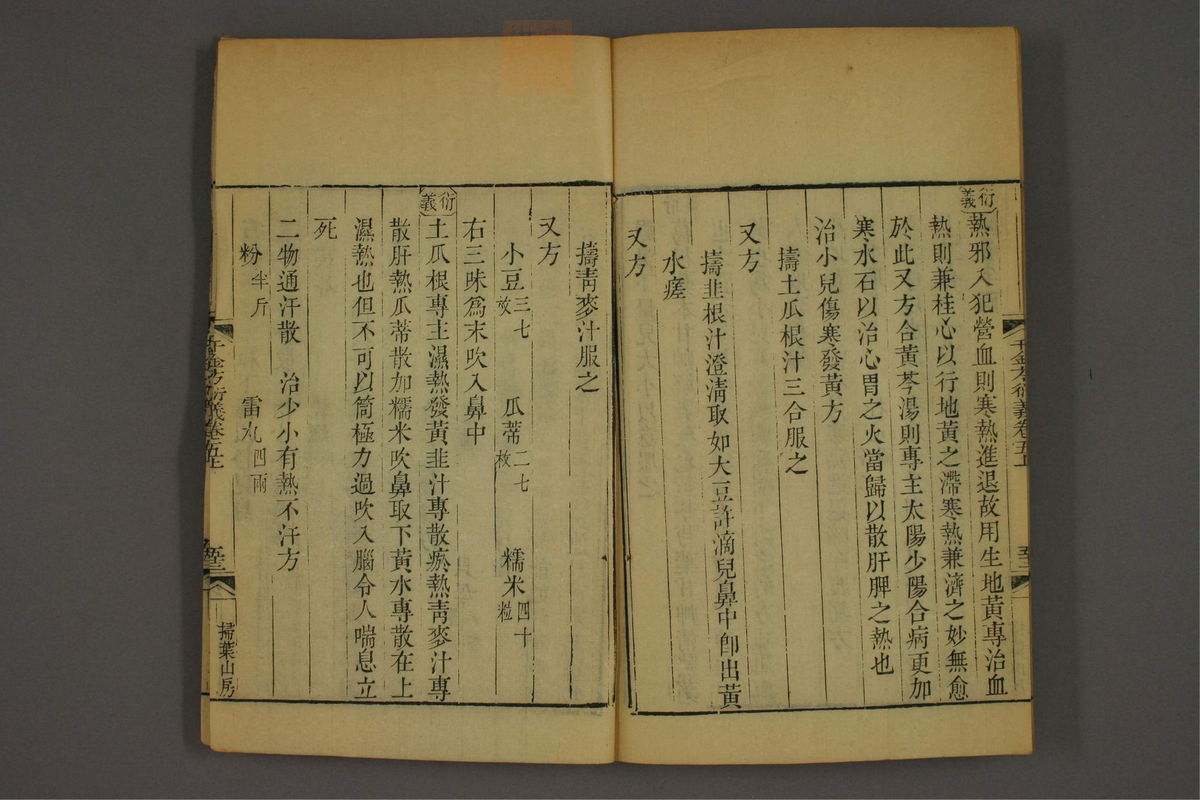 千金方衍義卷五上
至三
衍義
熱邪入犯營血則寒熱進退故用生地黃專治血
熱則兼桂心以行地黃之滯寒熱兼濟之妙無愈
於此又方合黃芩湯則專主太陽少陽合病更加
寒水石以治心胃之火當歸以散肝脾之熱也
治小兒傷寒發黃方
擣土瓜根汁三合服之
又方
擣韭根汁澄淸取如大豆許滴兒鼻中卽出黃
水瘥
又方
擣靑麥汁服之
又方
小豆三七枚 瓜蒂二七枚 糯米四十粒
右三味爲末吹入鼻中
衍義
土瓜根專主濕熱發黃韭汁專散瘀熱靑麥汁專
散肝熱瓜蒂散加糯米吹鼻取下黃水專散在上
濕熱也但不可以筒極力過吹入腦令人喘息立
死
二物通汗散 治少小有熱不汗方
粉半斤 雷丸四兩
千金方衍義卷五上
至三
掃葉山房